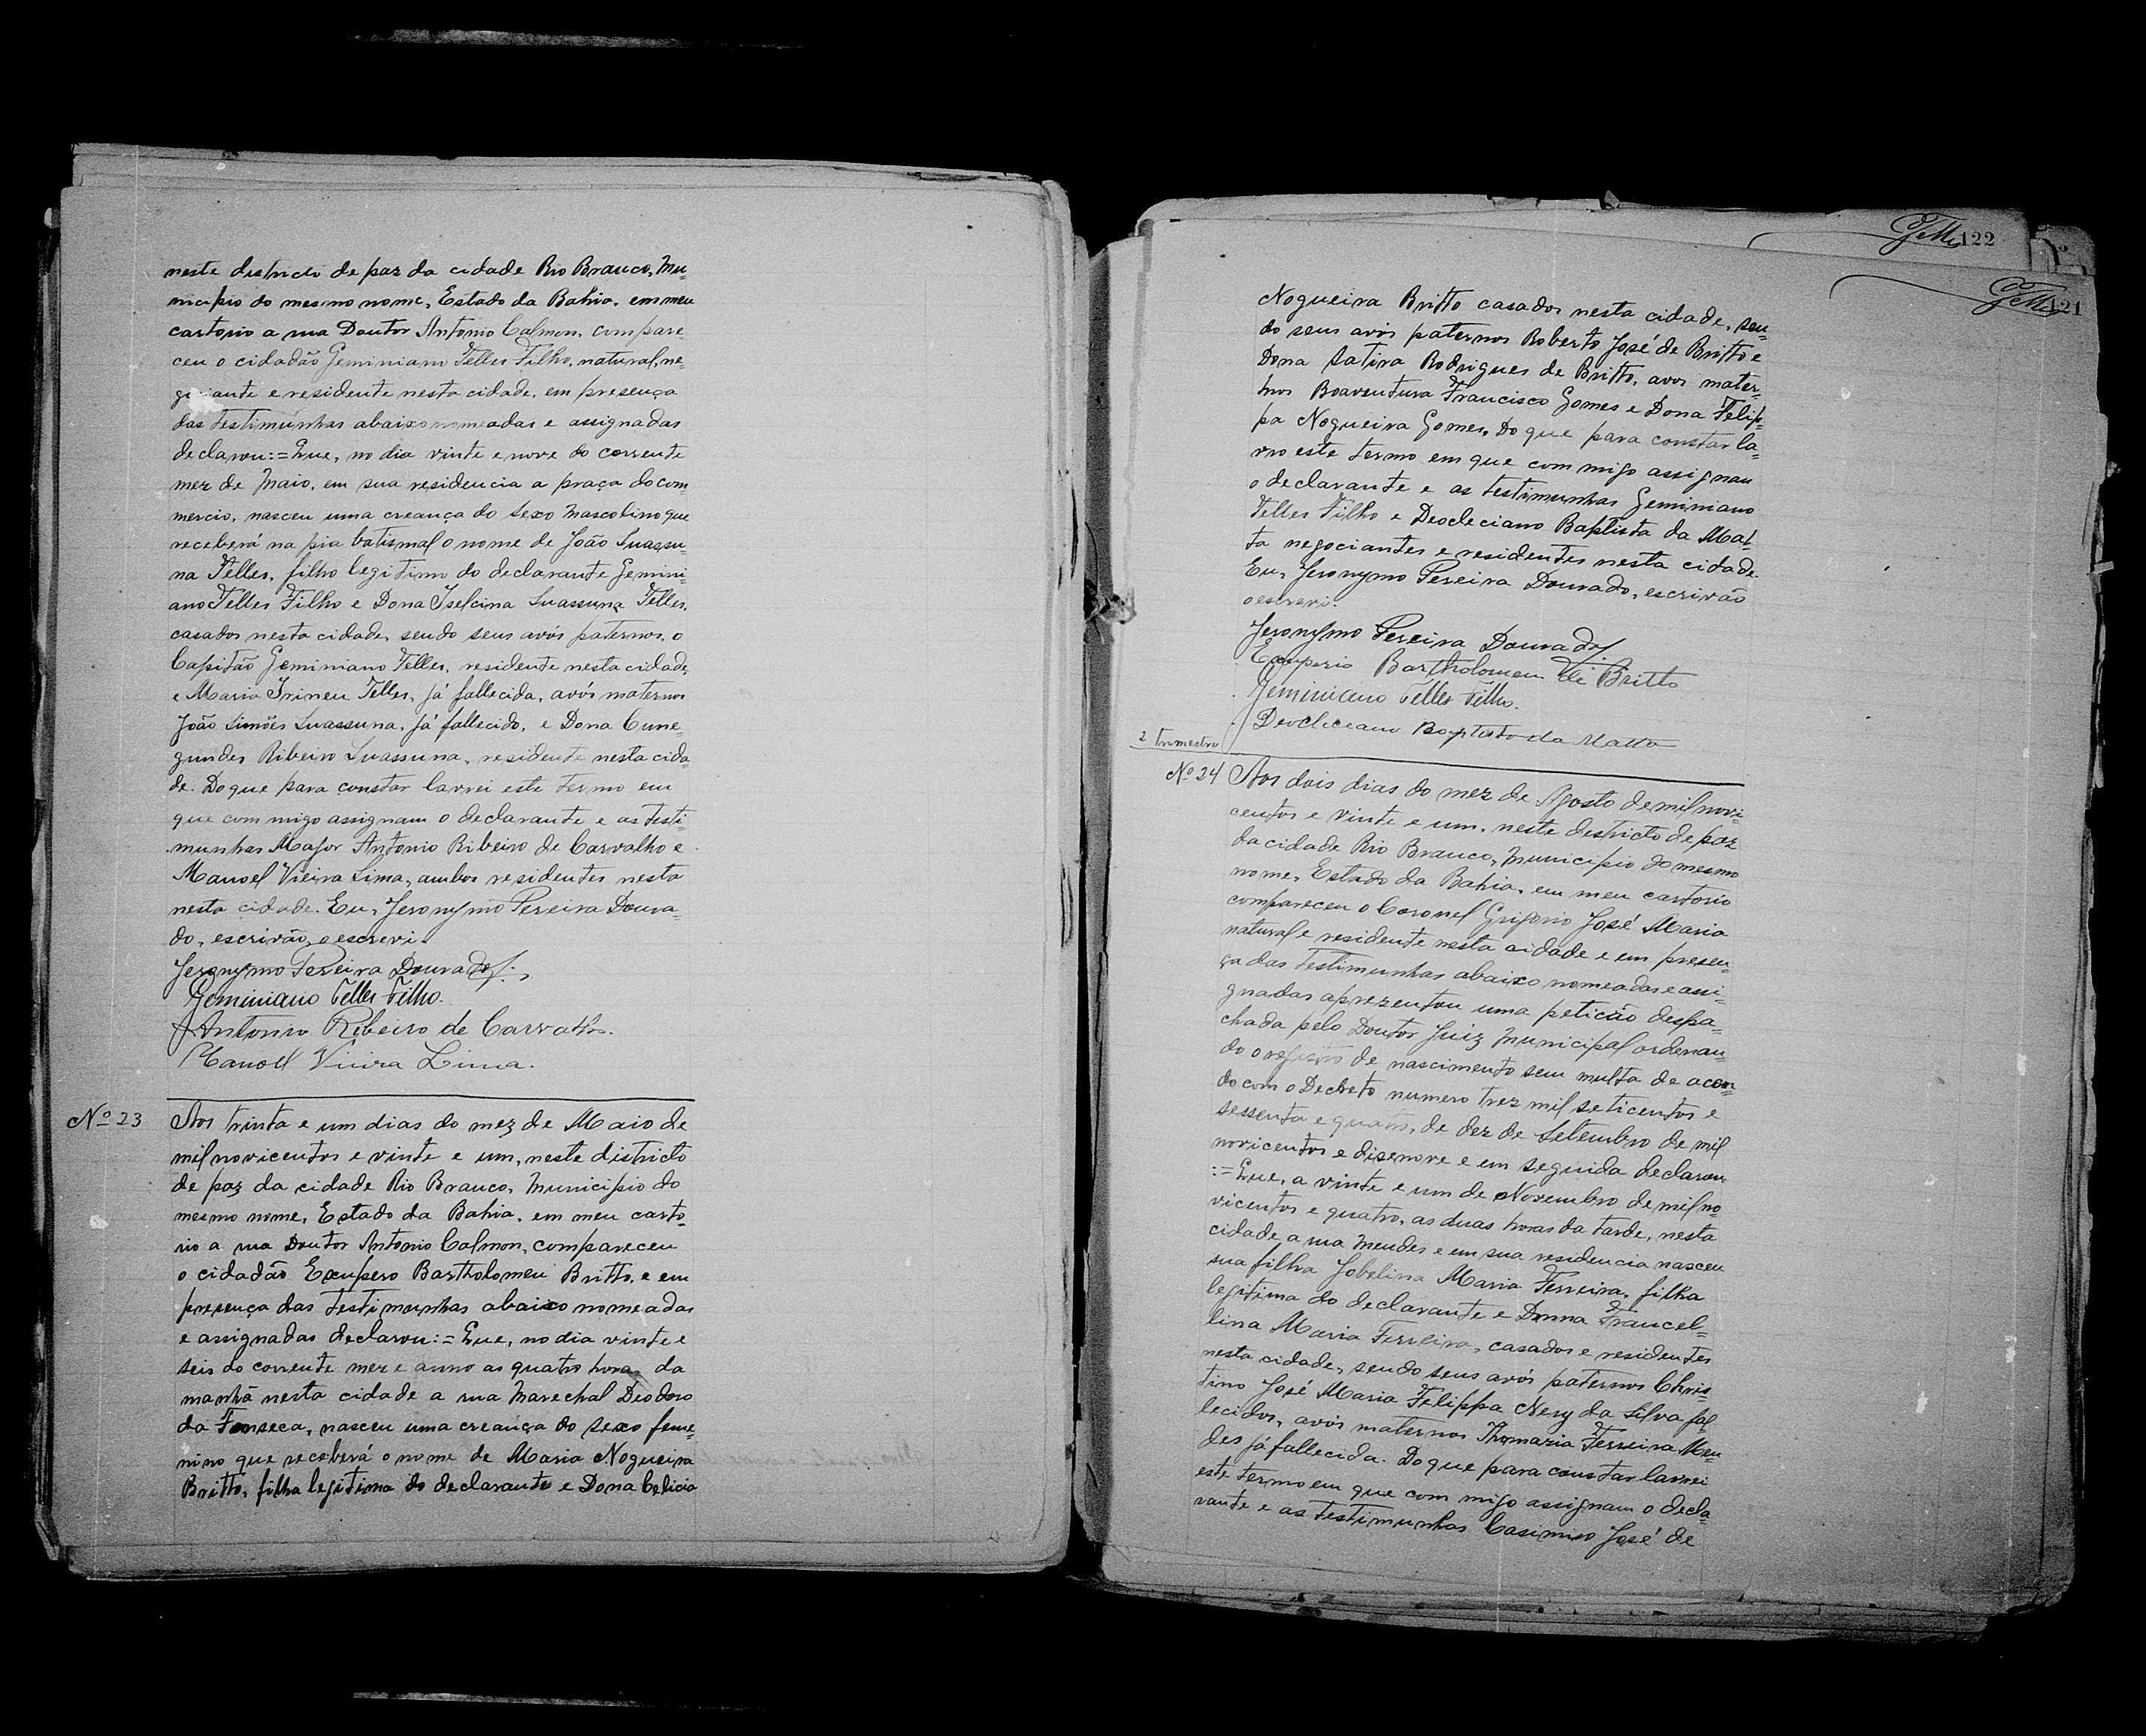 neste districto de paz da cidade Rio Branco, Mu=
nicipio do mesmo nome, Estado da Bahia, em meu
cartorio a rua Doutor Antonio Calmon, compare
ceu o cidadão Geminiano Telles Filho, natural, ne=
gociante e residente nesta cidade, em presença
das testimunhas abaixo nomeadas e assignadas
declarou:=Que, no dia vinte e nove do corrente
mez de Maio, em sua residencia a praça do com
mercio, nasceu uma creança do sexo Mascolino que
receberá na pia batismal o nome de João Suassu=
na Telles, filho legitimo do declarante Gemini=
ano Telles Filho e Dona Iselcina Suassuna Telles,
casados nesta cidade, sendo seus avós paternos, o
Capitão Geminiano Telles, residente nesta cidade,
e Maria Irineu Telles, já fallecida, avós maternos
João Simões Suassuna, já fallecido, e Dona Cune=
gundes Ribeiro Suassuna, residente nesta cida=
de. Do que para constar lavrei este termo em
que com migo assignam o declarante e as testi=
munhas Major Antonio Ribeiro de Carvalho e
Manoel Vieira Lima, ambos residentes nesta
nesta cidade. Eu, Jeronymo Pereira Doura=
do, escrivão, o escrevi.
Jeronymo Pereira Dourado
Geminiano Telles Filho.
Antonio Ribeiro de Carvalho.
Manoel Vieira Lima.
Nº 23 Aos trinta e um dias do mez de Maio de
mil novicentos e vinte e um, neste districto
de paz da cidade Rio Branco, Municipio do
mesmo nome, Estado da Bahia, em meu carto=
rio a rua Doutor Antonio Calmon, compareceu
o cidadão Exupero Bartholomeu Britto, e em
presença das testimunhas abaixo nomeadas
e assignadas declarou:=Que, no dia vinte e
seis do corrente mez e anno as quatro horas da
manhã nesta cidade a rua Marechal Deodoro
da Fonseca, nasceu uma creança do sexo feme=
nino que receberá o nome de Maria Nogueira
Britto, filha legitima do declarante e Dona Celicia
122
121
Nogueira Britto casados nesta cidade, sen=
do seus avós paternos Roberto José de Britto e
Dona Satira Rodrigues de Britto, avos mater=
nos Boaventura Francisco Gomes e Dona Felip=
pa Nogueira Gomes. Do que para constar la=
vro este termo em que com migo assignam
o declarante e as testimunhas Geminiano
Telles Filho e Deocleciano Baptista da Mat=
ta negociantes e residentes nesta cidade.
Eu, Jeronymo Pereira Dourado, escrivão
o escrevi.
Jeronymo Pereira Dourado
Exuperio Bartholomeu de Britto
Geminiano Telles Filho.
Deocleciano Baptista da Matta
2 trimestre
Nº 24 Aos dois dias do mez de Agosto de mil novi=
centos e vinte e um, neste districto de paz
da cidade Rio Branco, Municipio do mesmo
nome, Estado da Bahia, em meu cartorio
compareceu o Coronel Grigorio José Maria
natural e residente nesta cidade e em presen=
ça das testimunhas abaixo nomeadas e assi=
gnadas aprezentou uma petição despa=
chada pelo Doutor Juiz Municipal ordenan=
do o registro de nascimento sem multa de acor
do com o Decreto numero trez mil seticentos e
sessenta e quatro, de dez de Setembro de mil
novicentos e disenove e em seguida declarou
:=Que, a vinte e um de Novembro de mil no=
vicentos e quatro, as duas horas da tarde, nesta
cidade a rua Mendes e em sua residencia nasceu
sua filha Jobelina Maria Ferreira, filha
legitima do declarante e Donna Francel=
lina Maria Ferreira, casados e residentes
nesta cidade, sendo seus avós paternos Chris=
tino José Maria Felippa Nery da Silva fal
lecidos, avós maternos Thomazia Ferreira Men=
des já fallecida. Do que para constar lavrei
este termo em que com migo assignam o decla=
rante e as testimunhas Casimiro José de